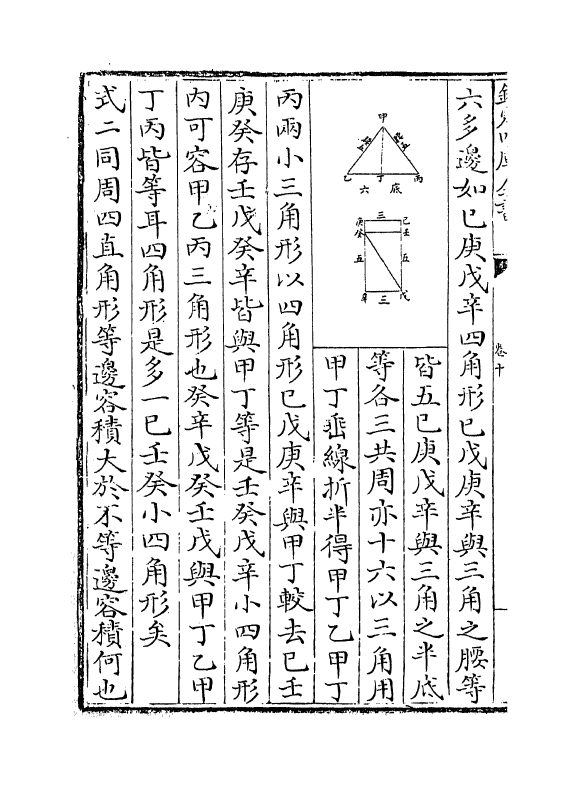 六多邊如已庚戊辛四角形已戊庚辛與三角之腰等
皆五已庚戊辛與三角之半底
等各三共周亦十六以三角用
甲丁垂線折半得甲丁乙甲丁
甲
乙
丁
丙
六
底
三
已
壬
庚
癸
五
五
辛
三
戊
丙兩小三角形以四角形已戊庚辛與甲丁較去已壬
庚癸存壬戊癸辛皆與甲丁等是壬癸戊辛小四角形
內可容甲乙丙三角形也癸辛戊癸壬戊與甲丁乙甲
丁丙皆等耳四角形是多一已壬癸小四角形矣
式二同周四直角形等邊容積大於不等邊容積何也
卷十